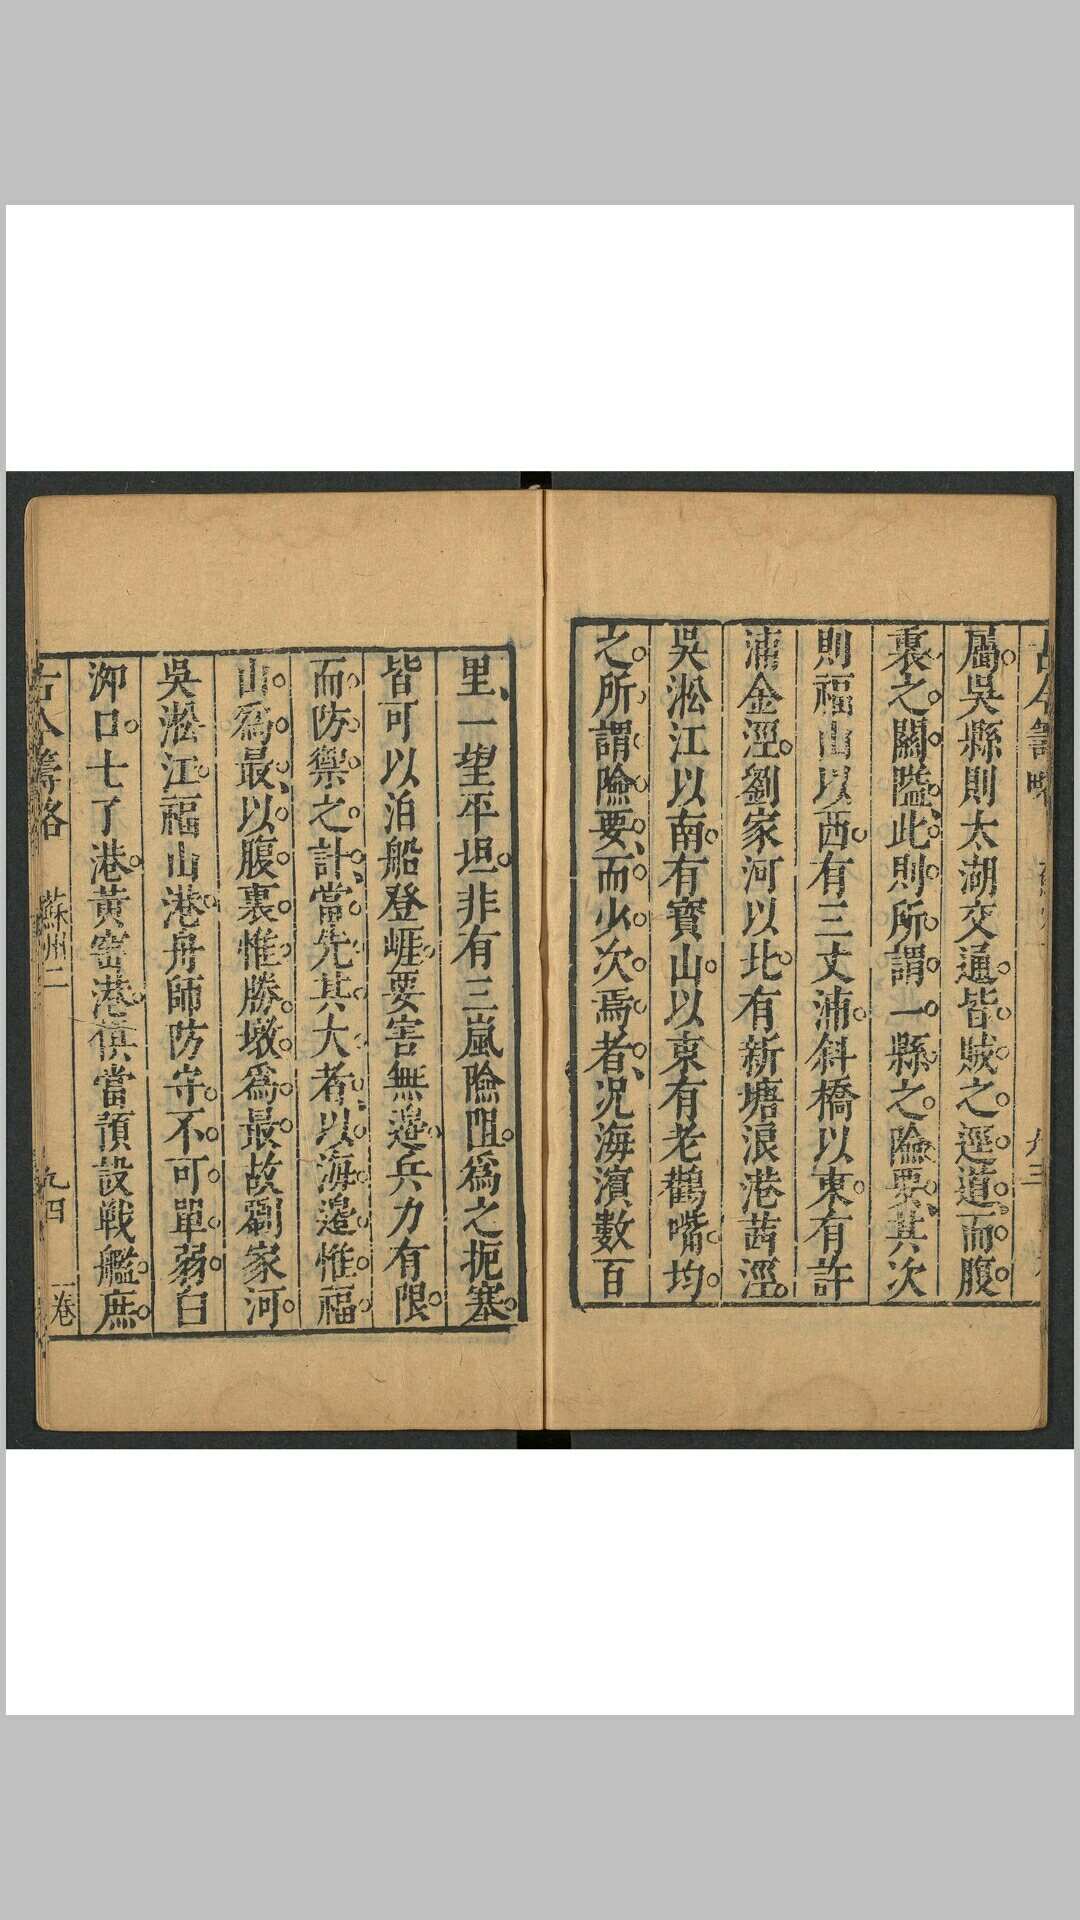 古今籌略
九三
屬吳縣則太湖交通皆賊之逕道而腹
裏之關隘此則所謂一縣之險要其次
則福山以西有三丈浦斜橋以東有許
浦金涇劉家河以北有新塘浪港茜涇
吳淞江以南有寶山以東有老鸛嘴均
之所謂險要而少次焉者况海濵數百
里一望平坦非有三嵐險阻爲之扼塞
皆可以泊船登崕要害無邉兵力有限
而防禦之計當先其大者以海邉惟福
山爲最以腹裏惟勝墩爲最故劉家河
吳淞江福山港舟師防守不可單弱白
泖口七了港黃窑港俱當預設戰艦庶
古今籌略 蘇州二 九四 一卷